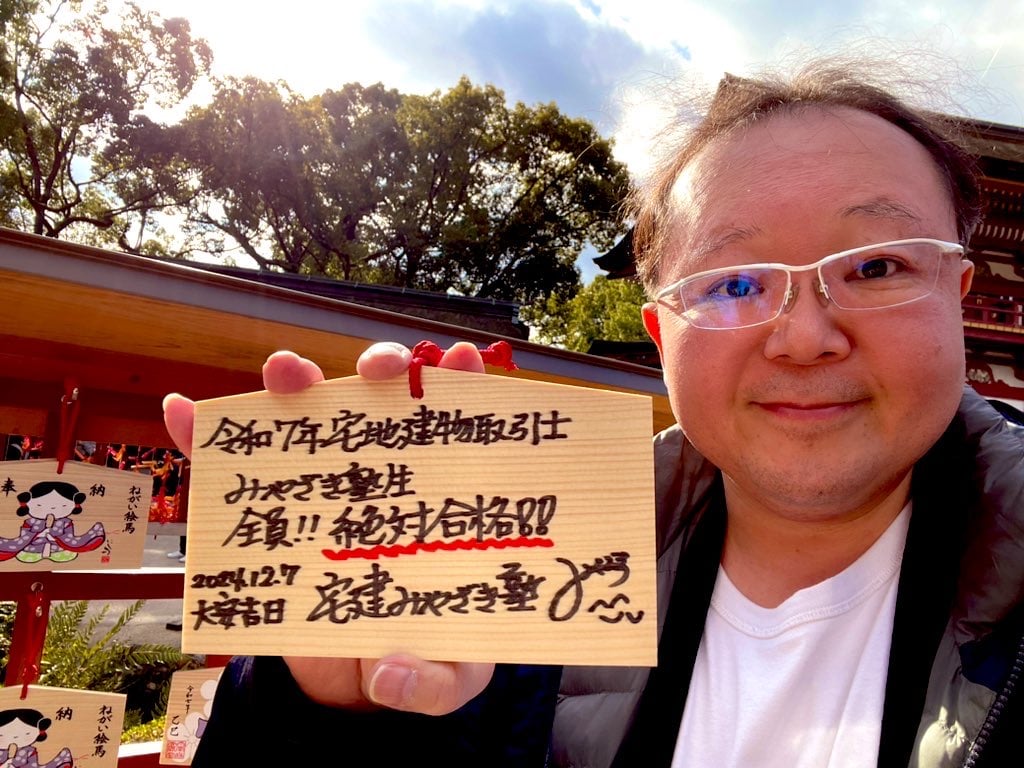 令和7年宅地建物取引士
みやざき塾生
全員!! 絶対合格!!
2024.12.7
大安吉日
宅建みやざき塾
奉 納
ねがい絵馬
納
ねがい絵馬
乙巳